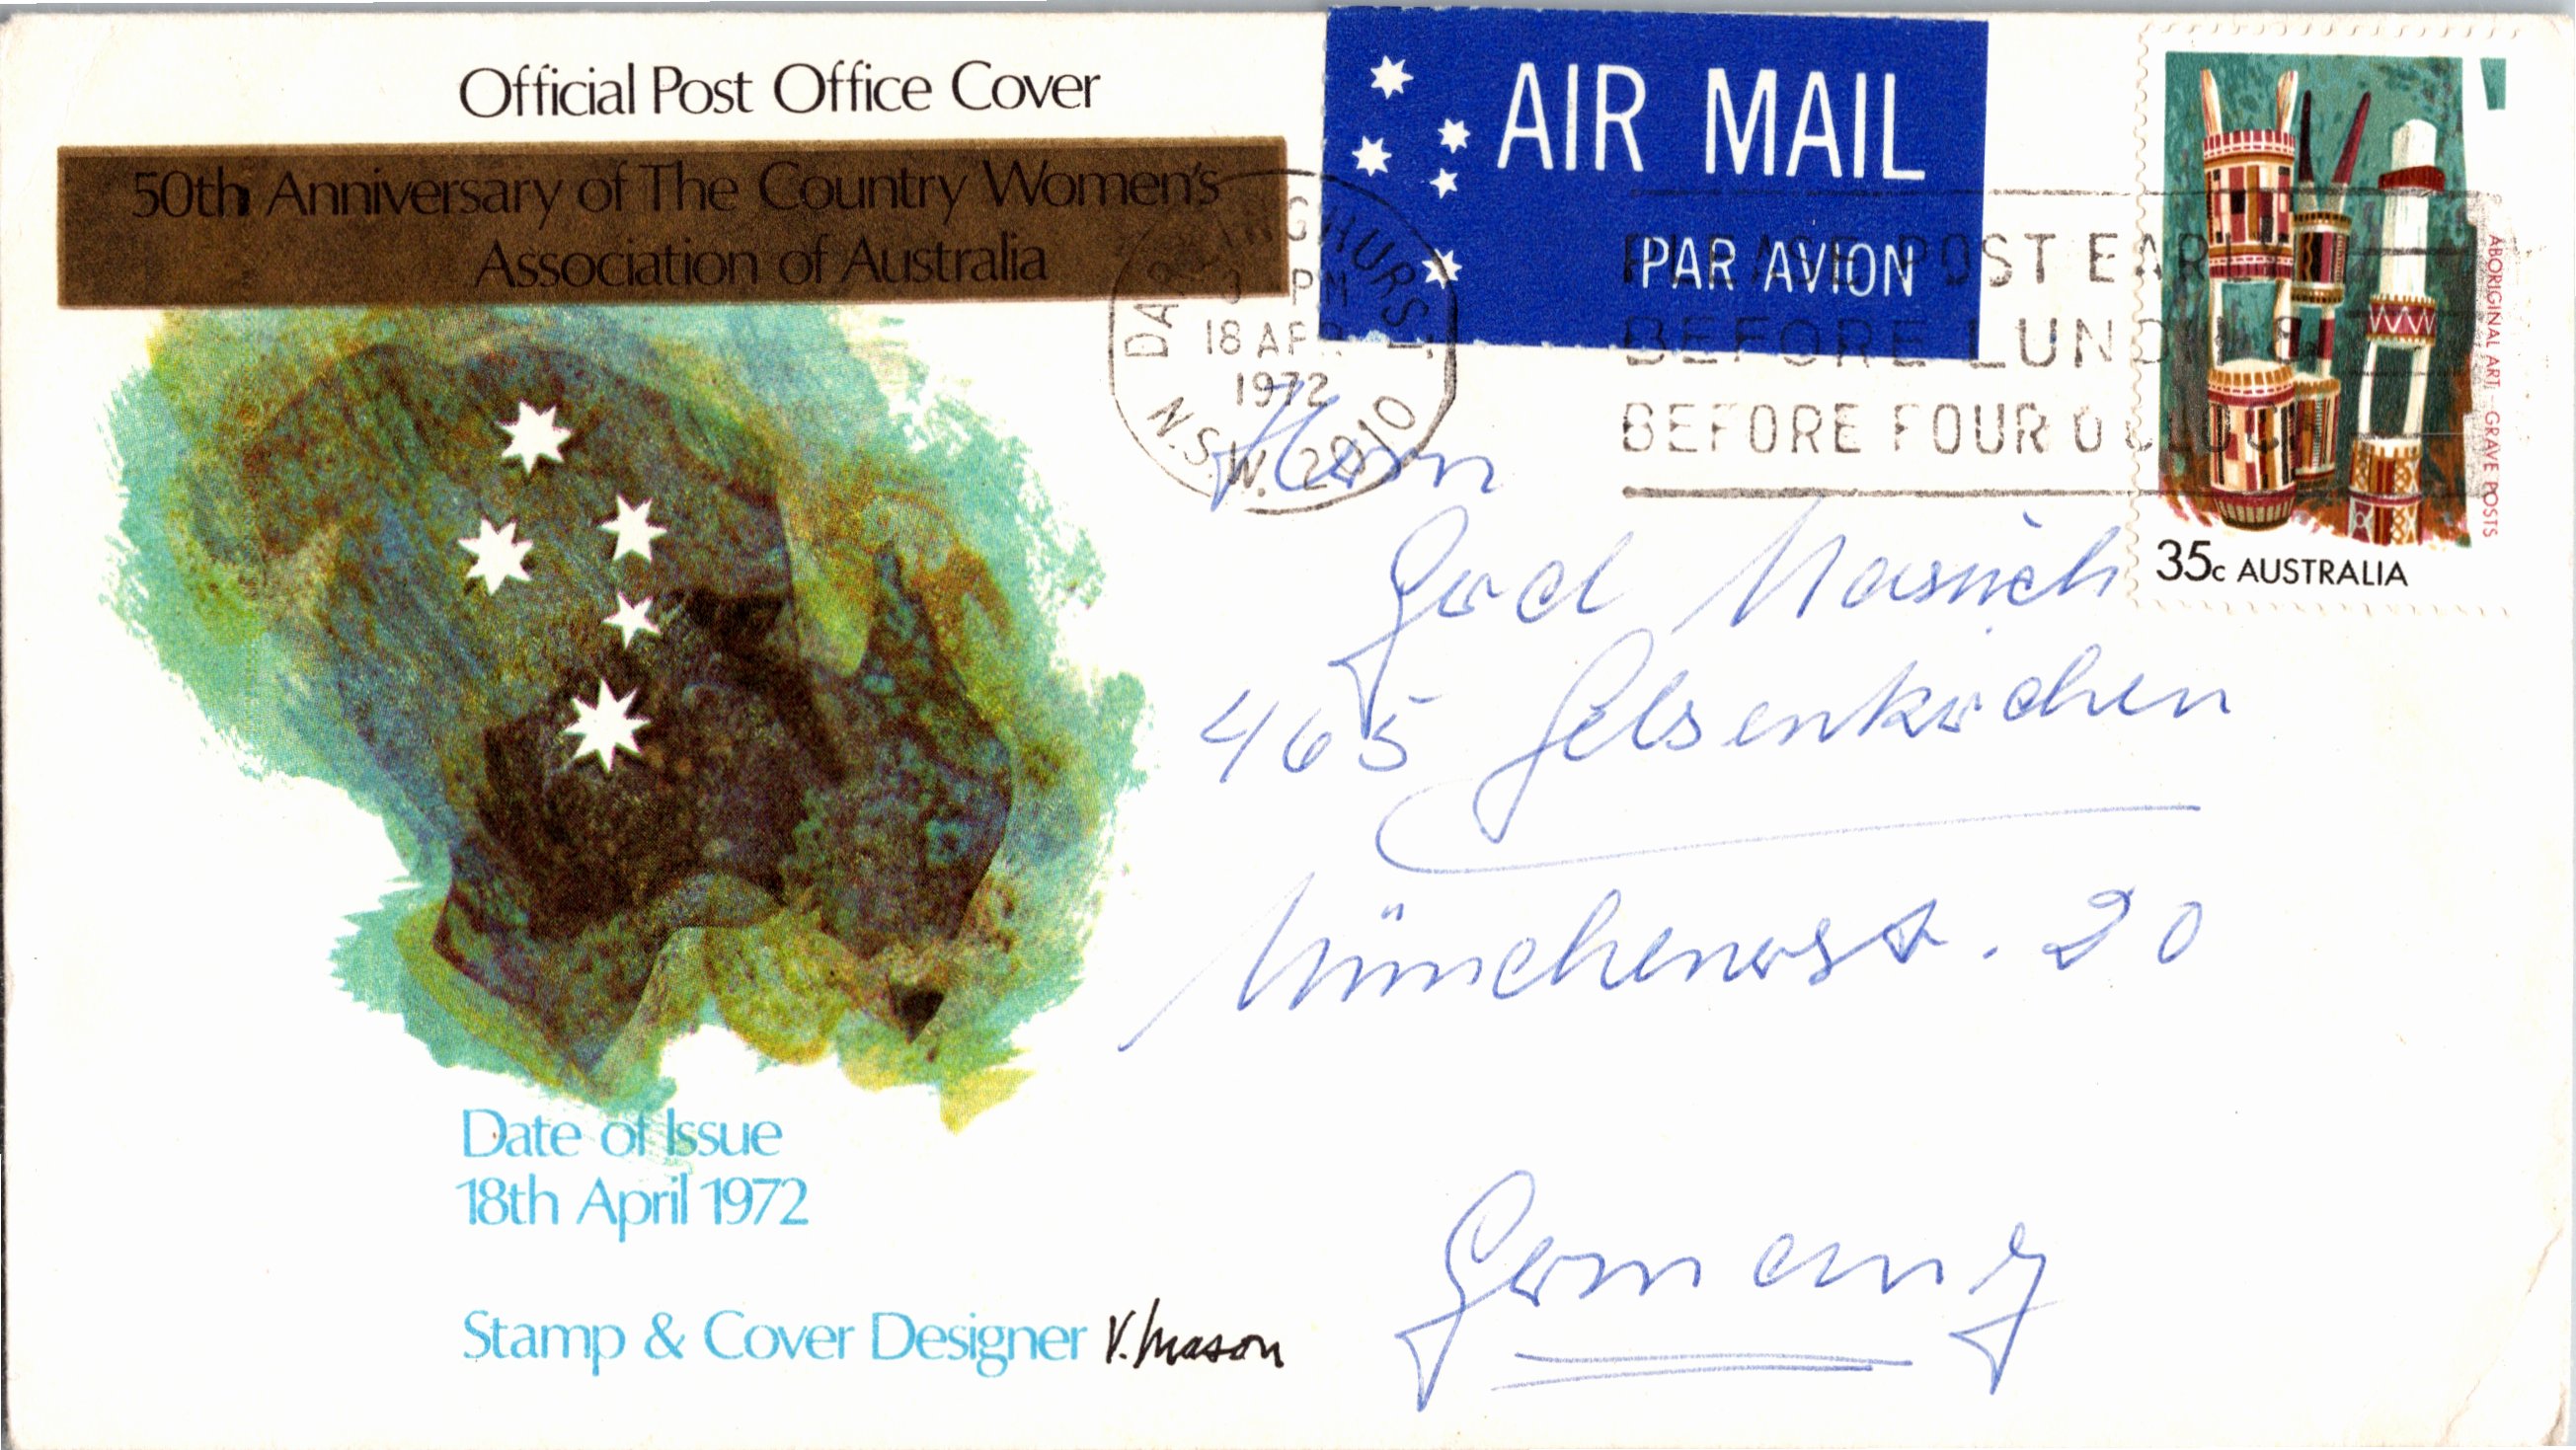 Official Post Office Cover
50th Anniversary of The Country Women's
Association of Australia
AIR MAIL
PAR AVION
DARLINGHURST
3 PM
18 APR
1972
N.S.W. 2010
PLEASE POST EARLY
BEFORE LUNCH &
BEFORE FOUR O'CLOCK
ABORIGINAL ART: GRAVE POSTS
35c AUSTRALIA
Herrn
Gerd
465 Gelsenkirchen
Münchenerst. 20
Germany
Date of Issue
18th April 1972
Stamp & Cover Designer V. Mason